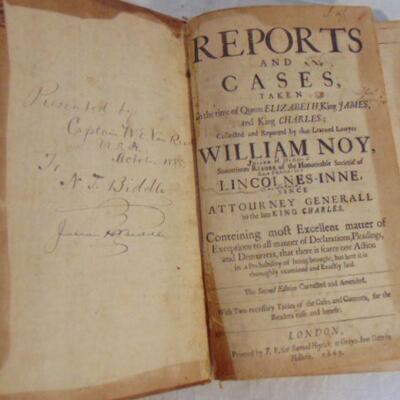 Presented by
Captain W.E. Van
U.S.A.
October
To
N. T. Biddle
REPORTS
AND
CASES,
TAKEN
In the time of Queen ELIZABETH, King JAMES,
and King CHARLES;
Collected and Reported by that Learned Lawyer
WILLIAM NOY,
Sometimes READER of the Honourable Societie of
LINCOLNES-INNE,
SINCE
ATTOURNEY GENERALL
to the late KING CHARLES.
Conteining most Excellent matter of
Exceptions to all manner of Declarations, Pleadings,
and Demurrers, that there is scarce one Action
in a Probability of being brought, but here it is
thoroughly examined and Exactly laid.
The Second Edition Corrected and Amended,
With Two necessary Tables of the Cases and Contents, for the
Readers ease and benefit.
LONDON,
Printed by T. R. for Samuel Heyrick, at Grayes-Inn Gate in
Holborn. 1669.